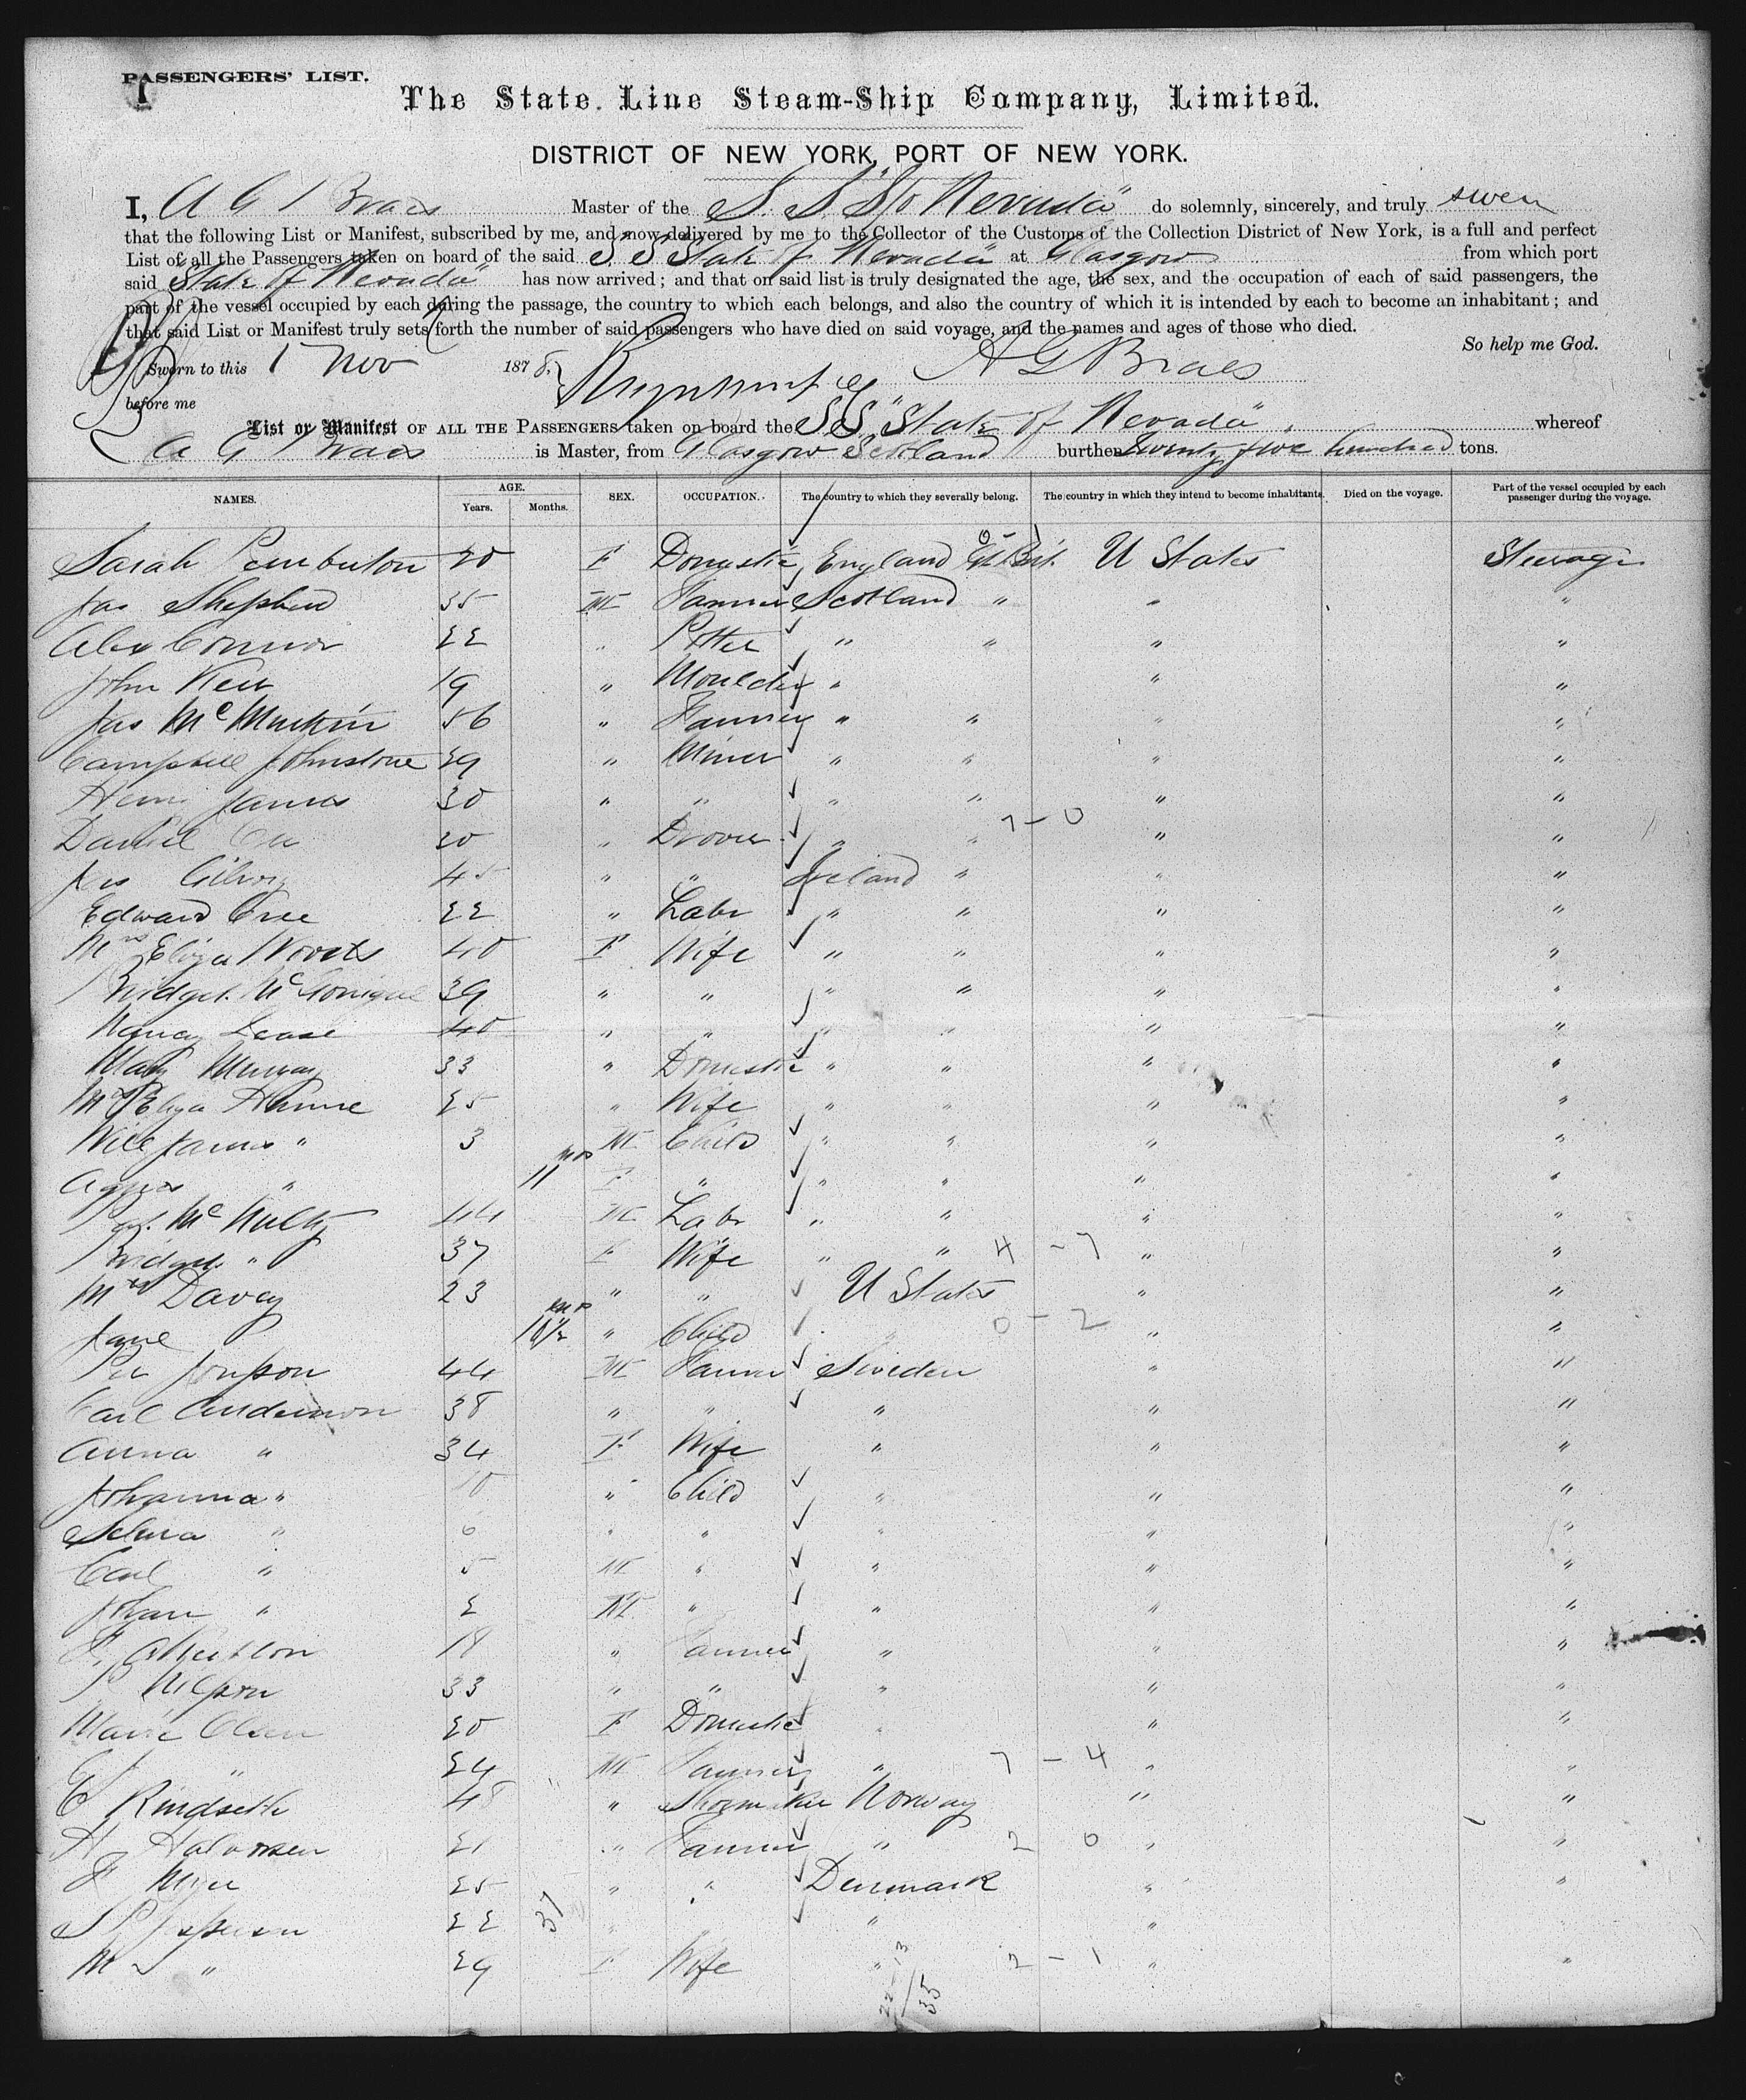 PASSENGERS' LIST.
The State Line Steam-Ship Company, Limited.
DISTRICT OF NEW YORK, PORT OF NEW YORK.
I, A G Braes Master of the S.S. S/o Nevada" do solemnly, sincerely, and truly swear
that the following List or Manifest, subscribed by me, and now delivered by me to the Collector of the Customs of the Collection District of New York, is a full and perfect
List of all the Passengers taken on board of the said S.S "State of Nevada" at Glasgow from which port
said State of Nevada" has now arrived; and that on said list is truly designated the age, the sex, and the occupation of each of said passengers, the
part of the vessel occupied by each during the passage, the country to which each belongs, and also the country of which it is intended by each to become an inhabitant; and
that said List or Manifest truly sets forth the number of said passengers who have died on said voyage, and the names and ages of those who died.
So help me God.
Sworn to this 1 Nov 1878. A G Braes
before me
List or Manifest OF ALL THE PASSENGERS taken on board the SS "State of Nevada" whereof
A G Braes is Master, from Glasgow Scotland burthen Twenty five hundred tons.
NAMES. AGE. Years. Months. SEX. OCCUPATION. The country to which they severally belong. The country in which they intend to become inhabitants. Died on the voyage. Part of the vessel occupied by each passenger during the voyage.
Sarah Pemberton 20 F Domestic England Gt Brit. U States Steerage
Jas Shepherd 35 M Farmer Scotland " " "
Alex Connor 22 " Potter " " " "
John Kerr 19 " Moulder " " "
Jas McMurkin 56 " Farmer " " " "
Campbell Johnstone 29 " Miner " " " "
James 30 " " " " " "
Daniel Orr 20 " Drover " " 7-0 " "
Jas 45 " " Ireland " " "
Edward Cree 22 " Labr " " " "
Mrs Eliza Woods 40 F Wife " " " "
Bridget McGonigal 39 " " " " " "
Nancy 40 " " " " " "
Mary Murray 33 " Domestic " " " "
Mrs Eliza 25 " Wife " " " "
Will James " 3 M Child " " " "
Agnes " 11 mos F " " " " "
Pat. McNulty 44 M Labr " " " "
Bridget " 37 F Wife " " 4-7 " "
Mrs Davey 23 " " U States " "
Jane 10½ mos " Child " 0-2 " "
Per Jonsson 44 M Farmer Sweden " "
Carl Anderson 38 " " " " "
Anna " 34 F Wife " " "
Johanna " 10 " Child " " "
Selma " 6 " " " " "
Carl " 5 M " " " "
Johan " 2 M " " " "
18 " Farmer " " "
P Nilsson 33 " " " " "
Marie Olsen 20 F Domestic " " "
" 24 M Farmer " 7-4 " "
E Rindseth 48 " Shoemaker Norway " "
H Halvorsen 21 " Farmer " 2 0 " "
F 25 " " Denmark " "
S P Jespersen 22 37 " " " " "
M " 29 F Wife " 2-1 " "
22-13
/35